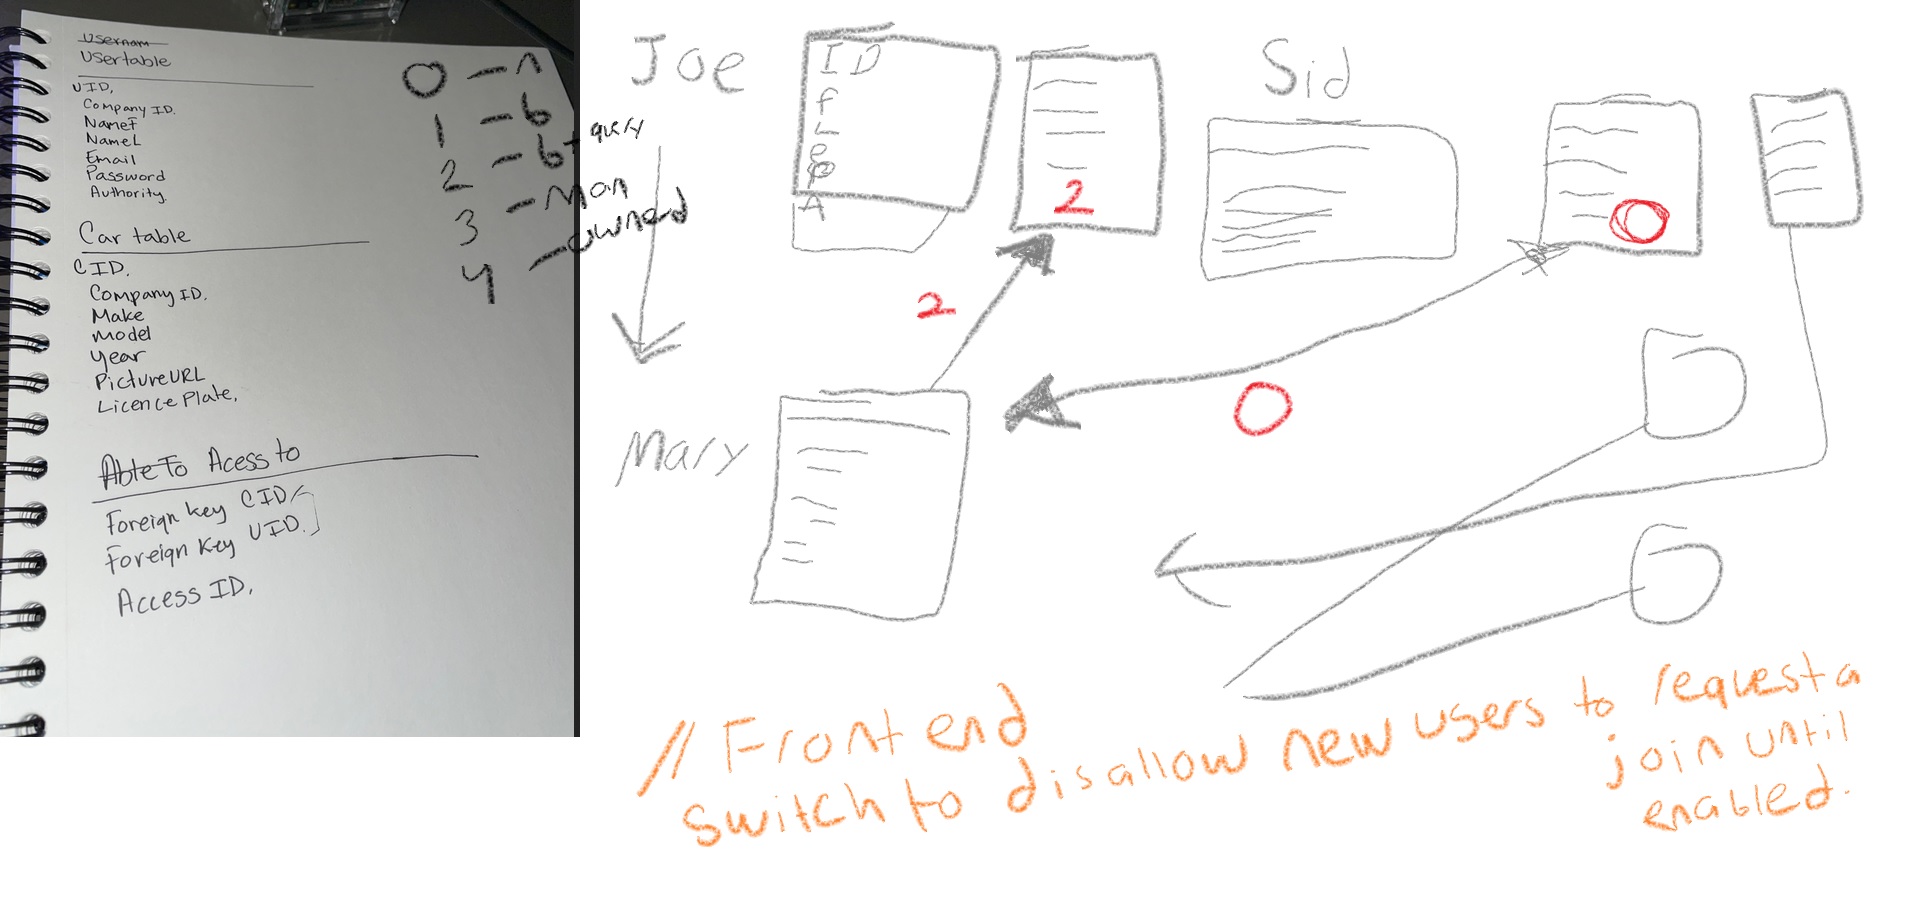 Usernam
Usertable
UID,
Company ID.
NameF
NameL
Email
Password
Authority.
Car table
CID.
Company ID.
Make
Model
Year
PictureURL
Licence Plate,
Able To Acess to
Foreign key CID
Foreign Key UID.
Access ID.
0 - n
1 - b
2 - b + query
3 - Man
4 - owned
Joe
ID
f
L
e
P
A
2
Sid
0
2
0
Mary
// Front end
switch to disallow new users to request a
join until
enabled.